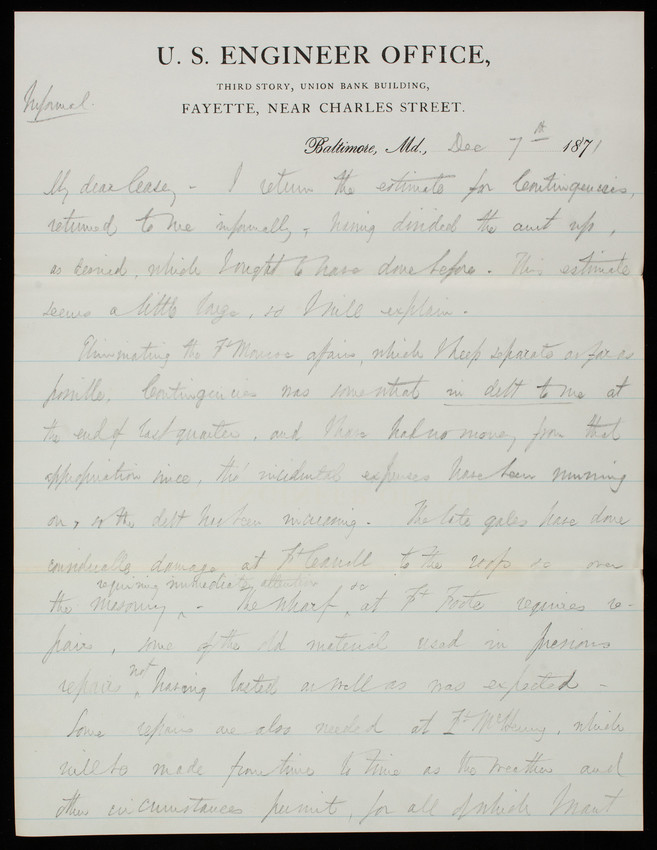 U. S. ENGINEER OFFICE,
THIRD STORY, UNION BANK BUILDING,
FAYETTE, NEAR CHARLES STREET.
Informal.
Baltimore, Md., Dec 7th 1871
My dear Casey - I return the estimate for Contingencies,
returned to me informally, having divided the amt up,
as desired, which I ought to have done before. This estimate
seems a little large, so I will explain.
Eliminating the Ft Monroe affairs, which I keep separate as far as
possible, Contingencies was somewhat in debt to me at
the end of last quarter, and I have had no money from that
appropriation since, tho' incidental expenses have been running
on, so the debt has been increasing. The late gales have done
considerable damage at Ft Carroll to the roofs &c over
requiring immediate attention
the masonry - The wharf &c at Ft Foote requires re-
pairs, some of the old material used in previous
repairs not having lasted as well as was expected -
Some repairs are also needed at Ft McHenry, which
will be made from time to time as the weather and
other circumstances permit, for all of which I want